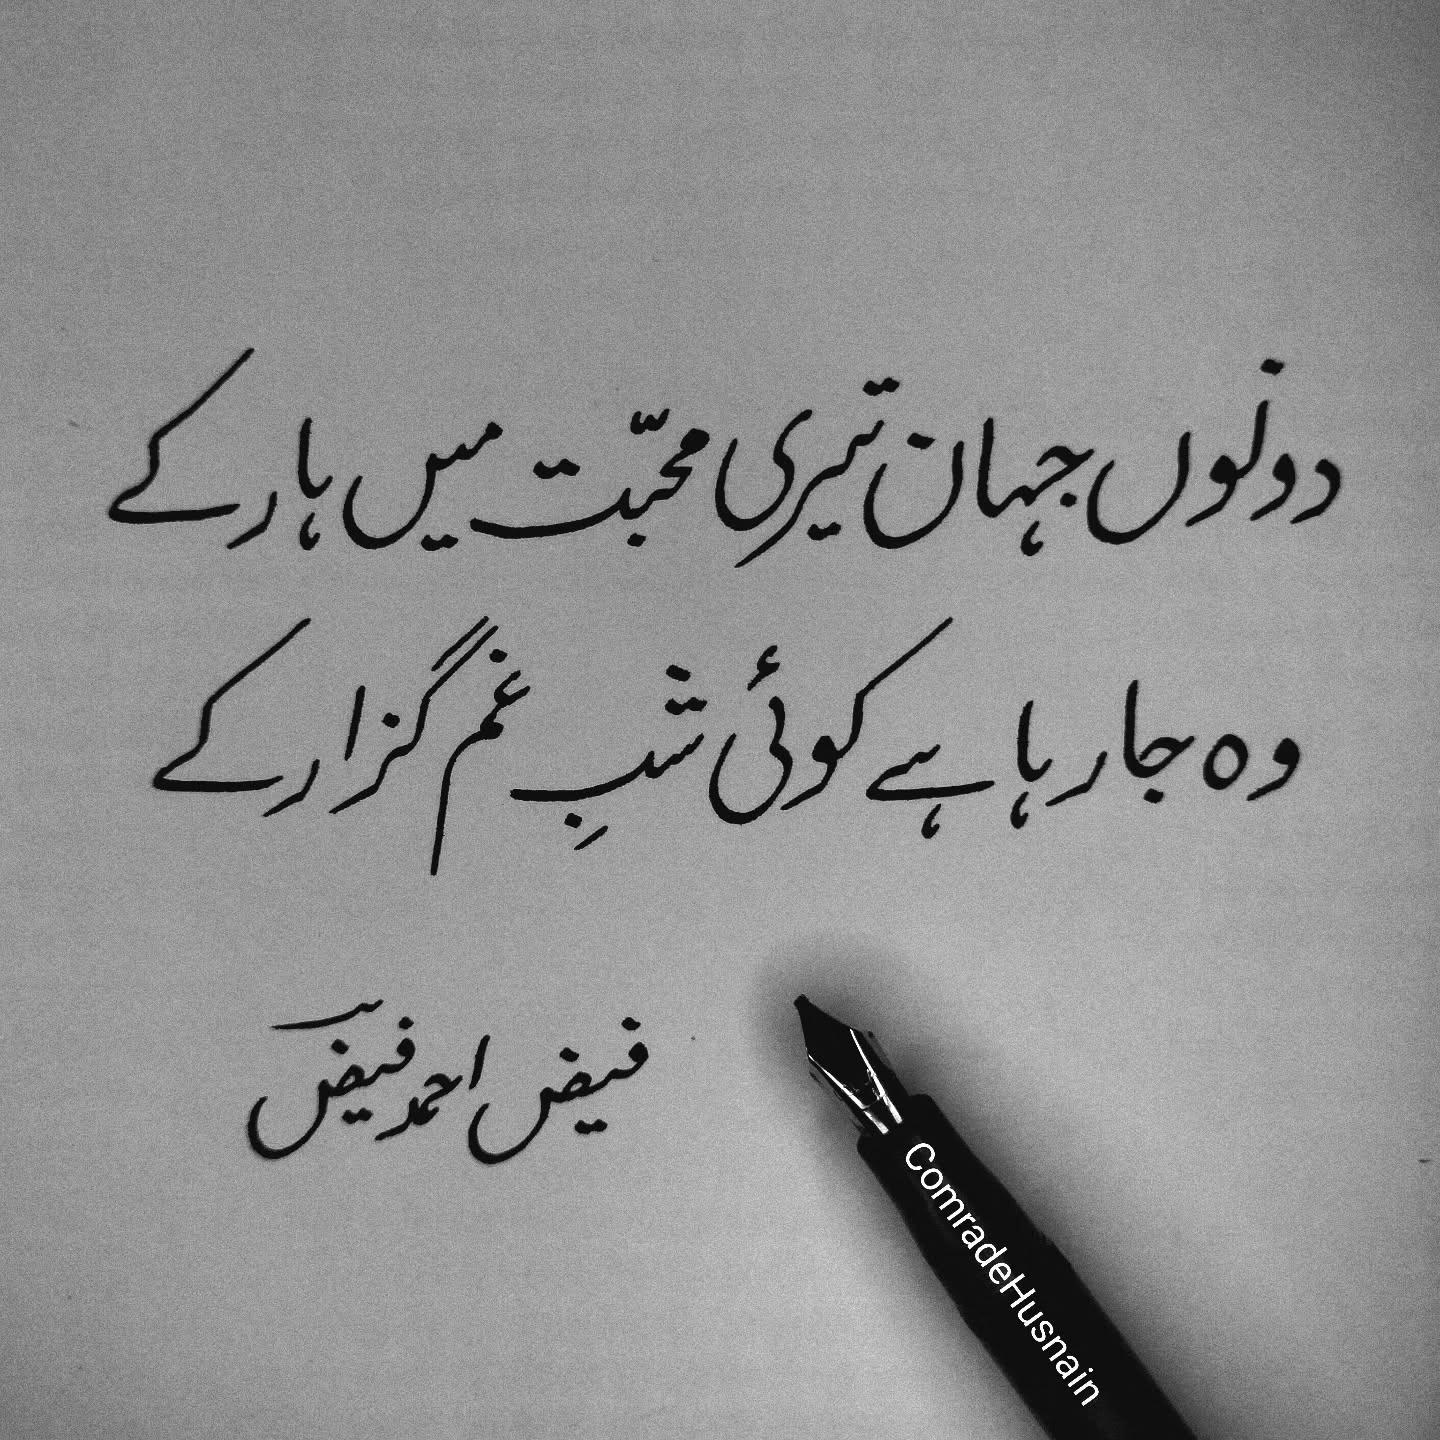 دونوں جہان تیری محبّت میں ہار کے
وہ جا رہا ہے کوئی شبِ غم گزار کے
فیض احمد فیضؔ
ComradeHusnain